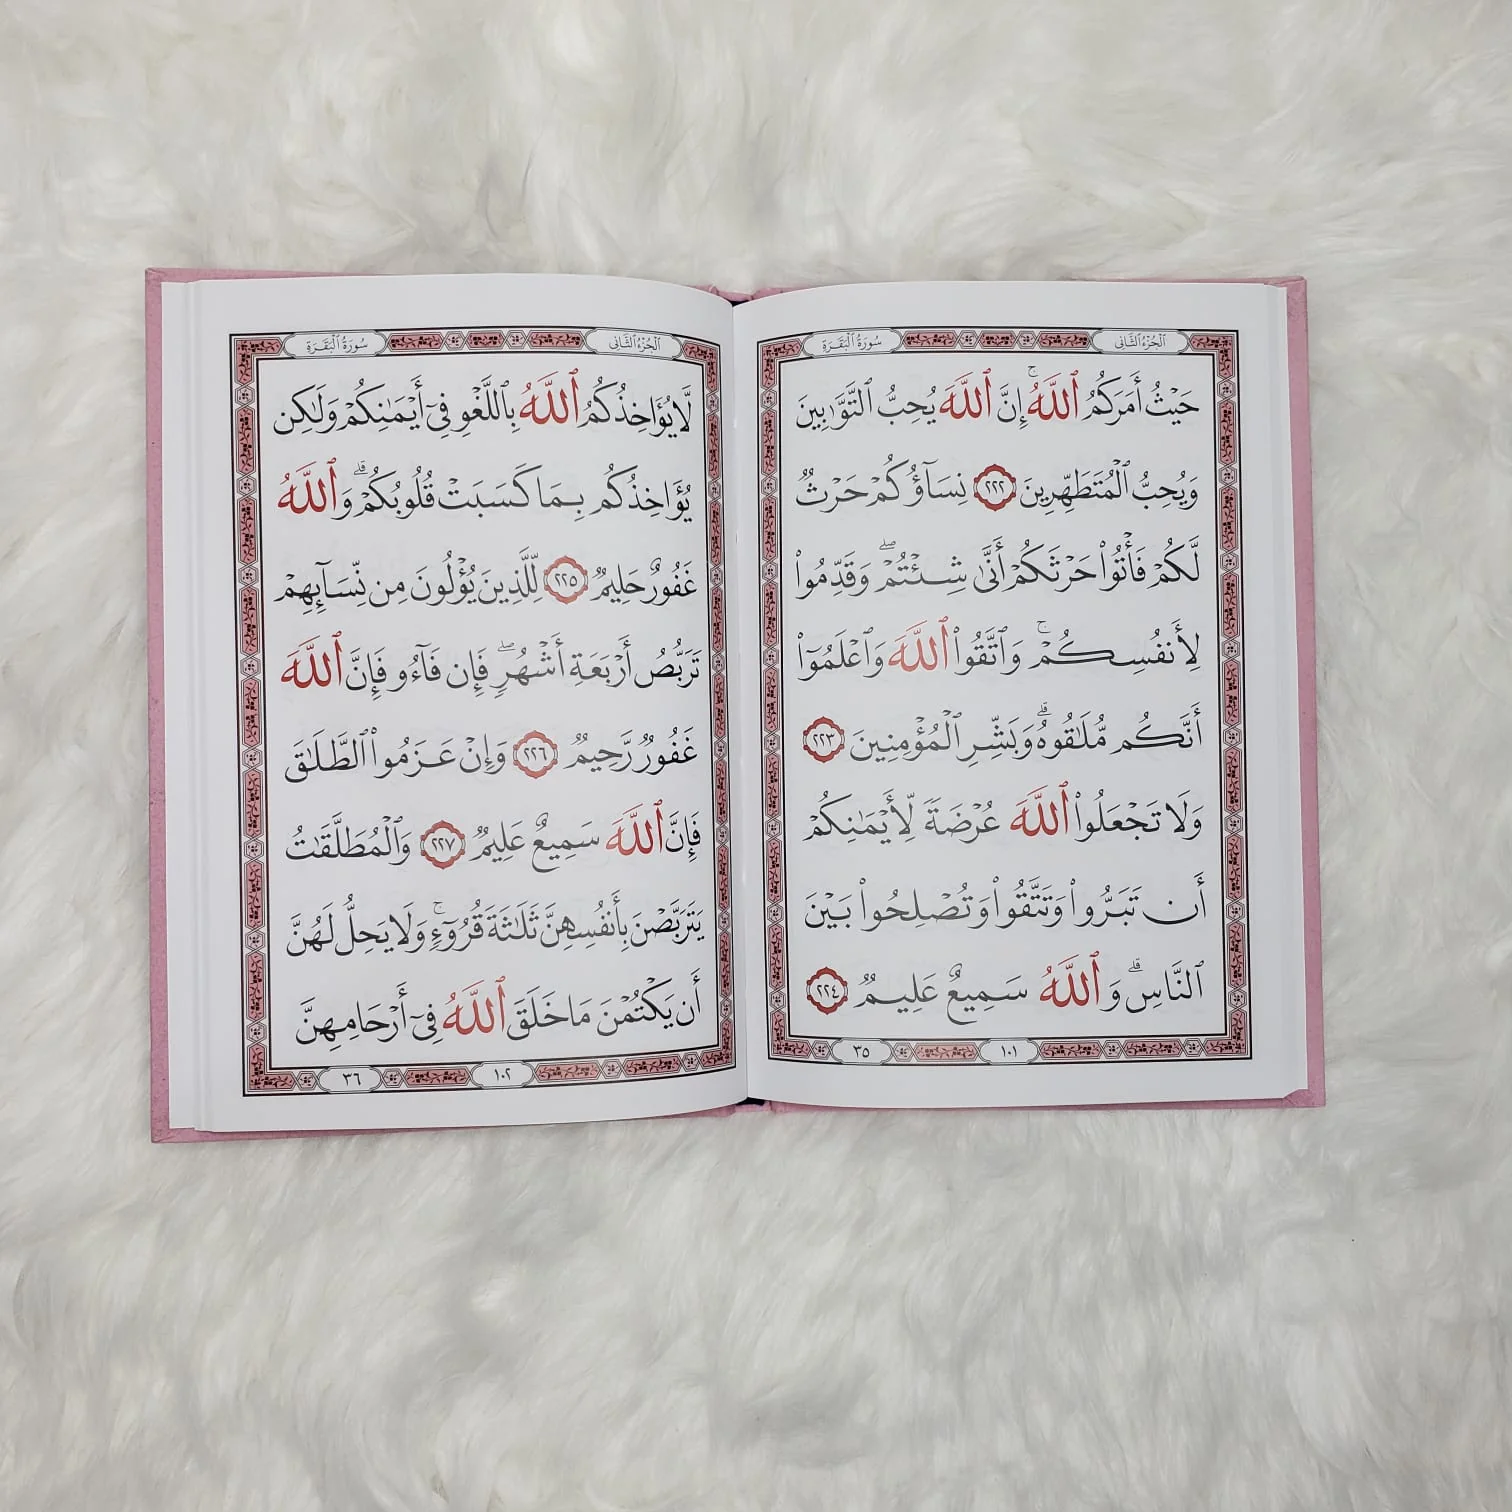 الجزء الثاني
سورة البقرة
حَيْثُ أَمَرَكُمُ ٱللَّهُۚ إِنَّ ٱللَّهَ يُحِبُّ ٱلتَّوَّٰبِينَ
وَيُحِبُّ ٱلْمُتَطَهِّرِينَ ٢٢٢ نِسَآؤُكُمْ حَرْثٌ
لَّكُمْ فَأْتُوا۟ حَرْثَكُمْ أَنَّىٰ شِئْتُمْۖ وَقَدِّمُوا۟
لِأَنفُسِكُمْۚ وَٱتَّقُوا۟ ٱللَّهَ وَٱعْلَمُوٓا۟
أَنَّكُم مُّلَٰقُوهُۗ وَبَشِّرِ ٱلْمُؤْمِنِينَ ٢٢٣
وَلَا تَجْعَلُوا۟ ٱللَّهَ عُرْضَةً لِّأَيْمَٰنِكُمْ
أَن تَبَرُّوا۟ وَتَتَّقُوا۟ وَتُصْلِحُوا۟ بَيْنَ
ٱلنَّاسِۗ وَٱللَّهُ سَمِيعٌ عَلِيمٌ ٢٢٤
١٠١
٣٥
الجزء الثاني
سورة البقرة
لَّا يُؤَاخِذُكُمُ ٱللَّهُ بِٱللَّغْوِ فِىٓ أَيْمَٰنِكُمْ وَلَٰكِن
يُؤَاخِذُكُم بِمَا كَسَبَتْ قُلُوبُكُمْۗ وَٱللَّهُ
غَفُورٌ حَلِيمٌ ٢٢٥ لِّلَّذِينَ يُؤْلُونَ مِن نِّسَآئِهِمْ
تَرَبُّصُ أَرْبَعَةِ أَشْهُرٍۖ فَإِن فَآءُو فَإِنَّ ٱللَّهَ
غَفُورٌ رَّحِيمٌ ٢٢٦ وَإِنْ عَزَمُوا۟ ٱلطَّلَٰقَ
فَإِنَّ ٱللَّهَ سَمِيعٌ عَلِيمٌ ٢٢٧ وَٱلْمُطَلَّقَٰتُ
يَتَرَبَّصْنَ بِأَنفُسِهِنَّ ثَلَٰثَةَ قُرُوٓءٍۚ وَلَا يَحِلُّ لَهُنَّ
أَن يَكْتُمْنَ مَا خَلَقَ ٱللَّهُ فِىٓ أَرْحَامِهِنَّ
١٠٢
٣٦